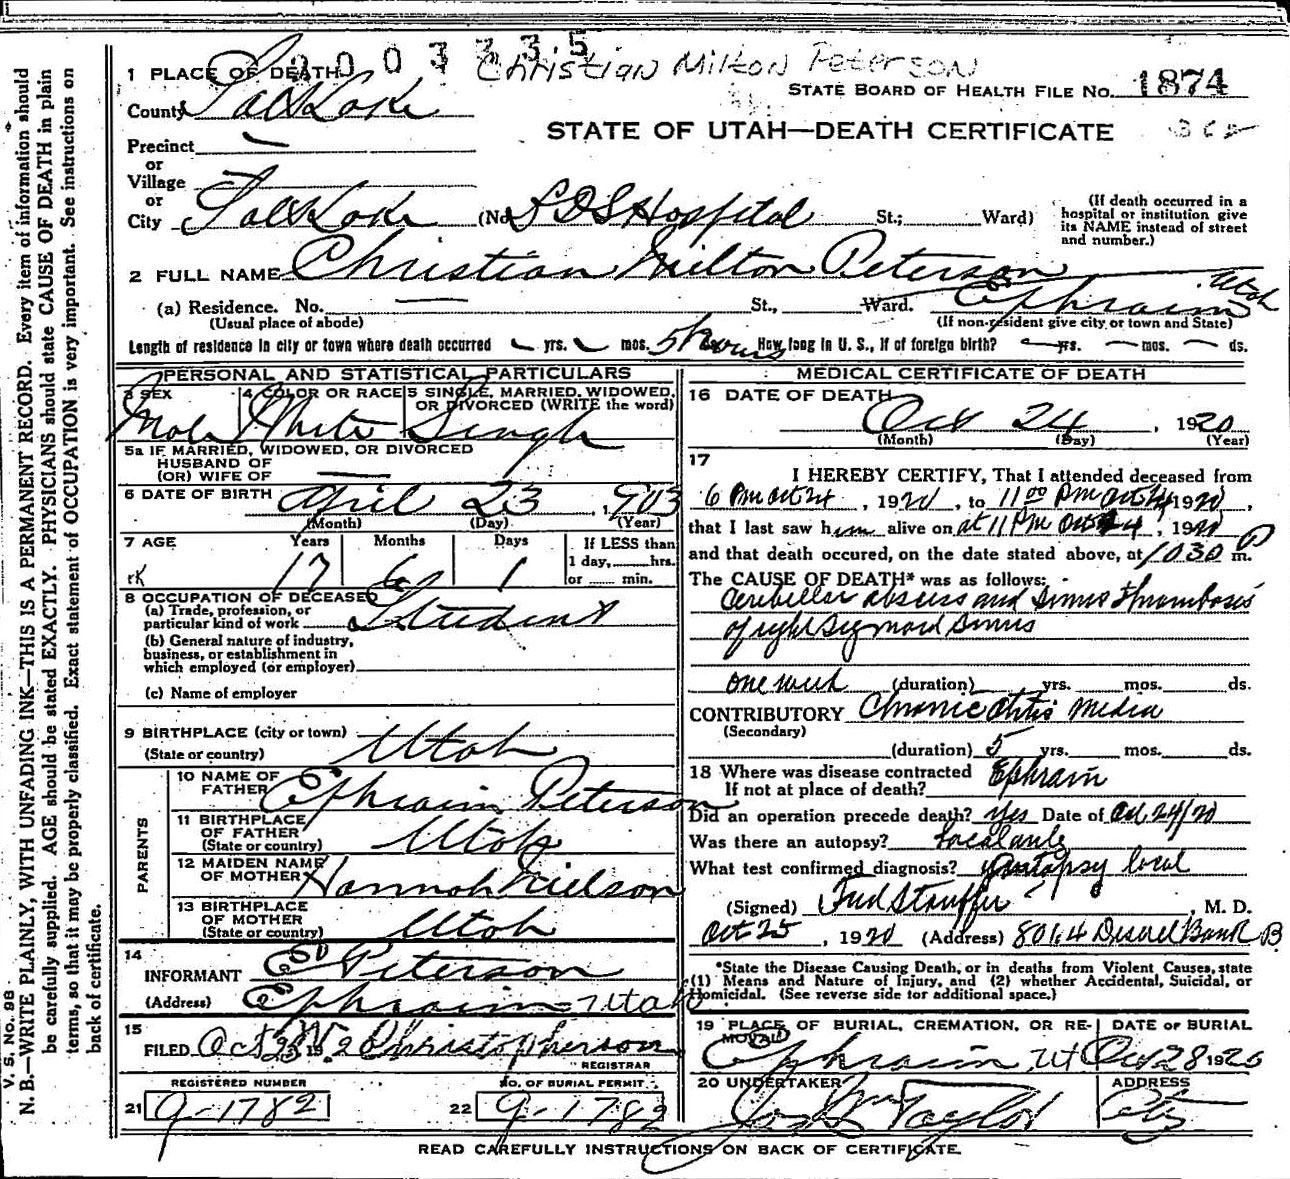 2003335
Christian Milton Peterson
1 PLACE OF DEATH
STATE BOARD OF HEALTH FILE NO. 1874
County Salt Lake
STATE OF UTAH—DEATH CERTIFICATE
Precinct —
or
Village
or
City Salt Lake (No. LDS Hospital St.; Ward)
(If death occurred in a
hospital or institution give
its NAME instead of street
and number.)
2 FULL NAME Christian Milton Peterson
(a) Residence. No. — St., Ward. Ephraim Utah
(Usual place of abode) (If non-resident give city or town and State)
Length of residence in city or town where death occurred — yrs. — mos. 5 hours How long in U. S., if of foreign birth? — yrs. — mos. — ds.
PERSONAL AND STATISTICAL PARTICULARS
3 SEX 4 COLOR OR RACE 5 SINGLE, MARRIED, WIDOWED,
OR DIVORCED (WRITE the word)
Male White Single
5a IF MARRIED, WIDOWED, OR DIVORCED
HUSBAND OF
(OR) WIFE OF —
6 DATE OF BIRTH April 23, 1903
(Month) (Day) (Year)
7 AGE Years Months Days If LESS than
1 day, hrs.
or min.
17 6 1
8 OCCUPATION OF DECEASED
(a) Trade, profession, or
particular kind of work Student
(b) General nature of industry,
business, or establishment in
which employed (or employer)
(c) Name of employer
9 BIRTHPLACE (city or town)
(State or country) Utah
PARENTS
10 NAME OF
FATHER Ephraim Peterson
11 BIRTHPLACE
OF FATHER
(State or country) Utah
12 MAIDEN NAME
OF MOTHER Hannah Nielson
13 BIRTHPLACE
OF MOTHER
(State or country) Utah
14
INFORMANT Peterson
(Address) Ephraim Utah
15
FILED Oct Christopherson
REGISTRAR
REGISTERED NUMBER NO. OF BURIAL PERMIT
21 9-1782 22 9-1782
MEDICAL CERTIFICATE OF DEATH
16 DATE OF DEATH
Oct 24, 1920
(Month) (Day) (Year)
17
I HEREBY CERTIFY, That I attended deceased from
6 PM Oct 24, 1920, to 11 00 PM Oct 24 1920,
that I last saw him alive on at 11 PM Oct 24, 1920
and that death occured, on the date stated above, at 1030 P m.
The CAUSE OF DEATH* was as follows:
Cerebellar abscess and Sinus Thrombosis
of right Sigmoid Sinus
one week (duration) yrs. mos. ds.
CONTRIBUTORY Chronic Otitis Media
(Secondary)
(duration) 5 yrs. mos. ds.
18 Where was disease contracted
If not at place of death? Ephraim
Did an operation precede death? Yes Date of Oct 24/20
Was there an autopsy? Local only
What test confirmed diagnosis? autopsy local
(Signed) Fred Stauffer, M. D.
Oct 25, 1920 (Address) 801.4 Deseret Bank B
*State the Disease Causing Death, or in deaths from Violent Causes, state
(1) Means and Nature of Injury, and (2) whether Accidental, Suicidal, or
Homicidal. (See reverse side for additional space.)
19 PLACE OF BURIAL, CREMATION, OR RE-
MOVAL
DATE OF BURIAL
Ephraim, Ut Oct 28 1920
20 UNDERTAKER ADDRESS
Jos Wm Taylor City
READ CAREFULLY INSTRUCTIONS ON BACK OF CERTIFICATE.
V. S. No. 98
N. B.—WRITE PLAINLY, WITH UNFADING INK—THIS IS A PERMANENT RECORD. Every item of information should
be carefully supplied. AGE should be stated EXACTLY. PHYSICIANS should state CAUSE OF DEATH in plain
terms, so that it may be properly classified. Exact statement of OCCUPATION is very important. See instructions on
back of certificate.